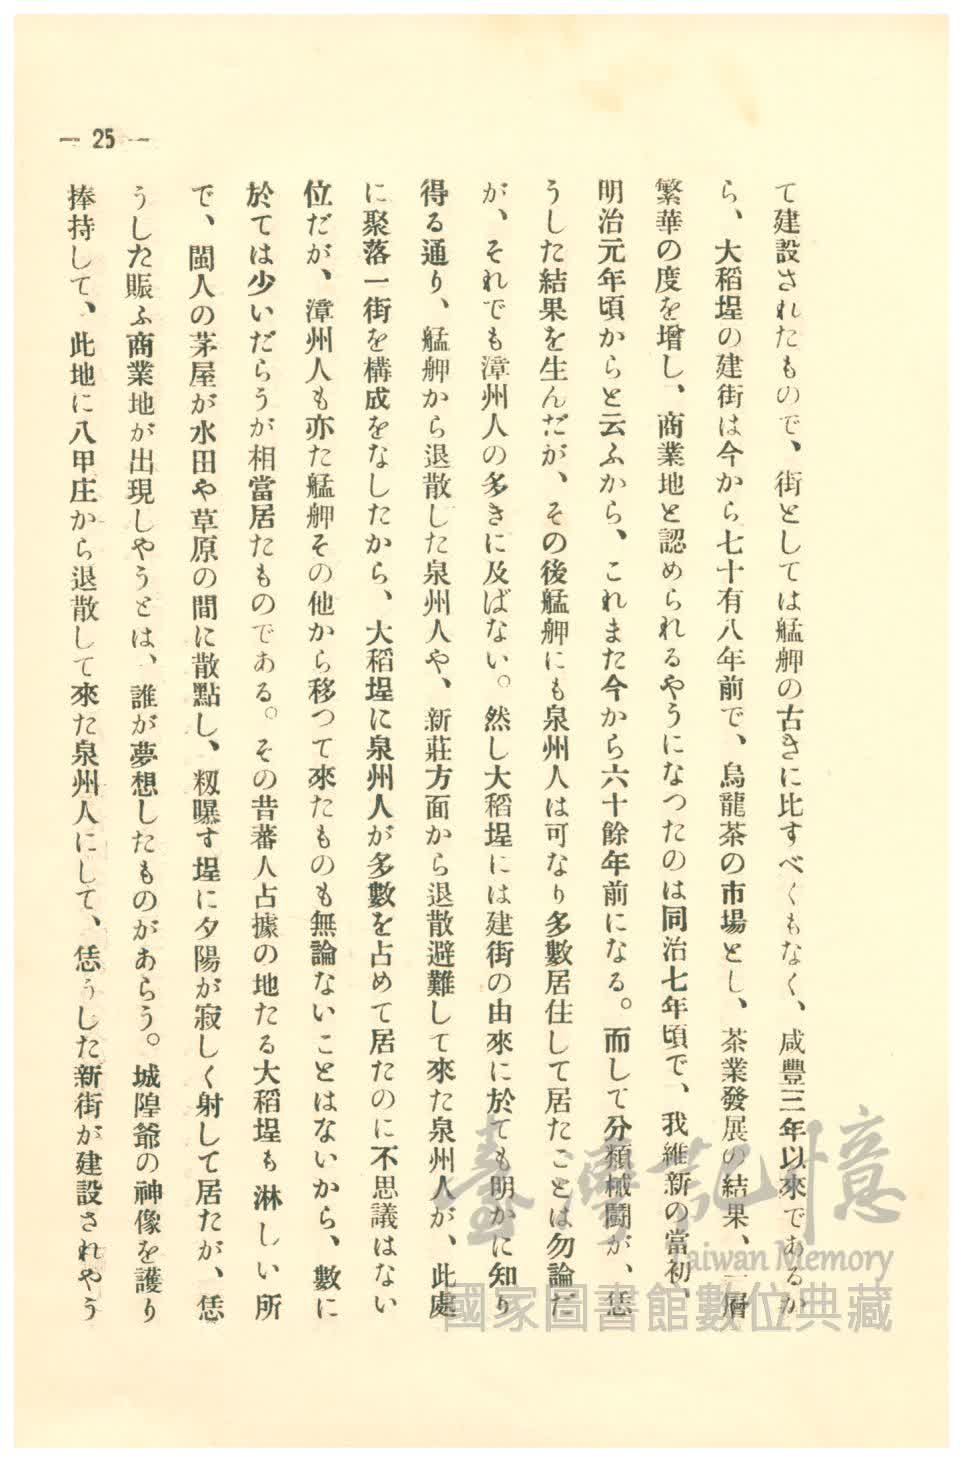 — 25 —
て建設されたもので、街としては艋舺の古きに比すべくもなく、咸豐三年以來であるか
ら、大稻埕の建街は今から七十有八年前で、烏龍茶の市場とし、茶業發展の結果、一層
繁華の度を増し、商業地と認められるやうになつたのは同治七年頃で、我維新の當初、
明治元年頃からと云ふから、これまた今から六十餘年前になる。而して分類械鬪が、恁
うした結果を生んだが、その後艋舺にも泉州人は可なり多數居住して居たことは勿論だ
が、それでも漳州人の多きに及ばない。然し大稻埕には建街の由來に於ても明かに知り
得る通り、艋舺から退散した泉州人や、新莊方面から退散避難して來た泉州人が、此處
に聚落一街を構成をなしたから、大稻埕に泉州人が多數を占めて居たのに不思議はない
位だが、漳州人も亦た艋舺その他から移つて來たものも無論ないことはないから、數に
於ては少いだらうが相當居たものである。その昔蕃人占據の地たる大稻埕も淋しい所
で、閩人の茅屋が水田や草原の間に散點し、籾曝す埕に夕陽が寂しく射して居たが、恁
うした賑ふ商業地が出現しやうとは、誰が夢想したものがあらう。城隍爺の神像を護り
捧持して、此地に八甲庄から退散して來た泉州人にして、恁うした新街が建設されやう
臺灣記憶
Taiwan Memory
國家圖書館數位典藏